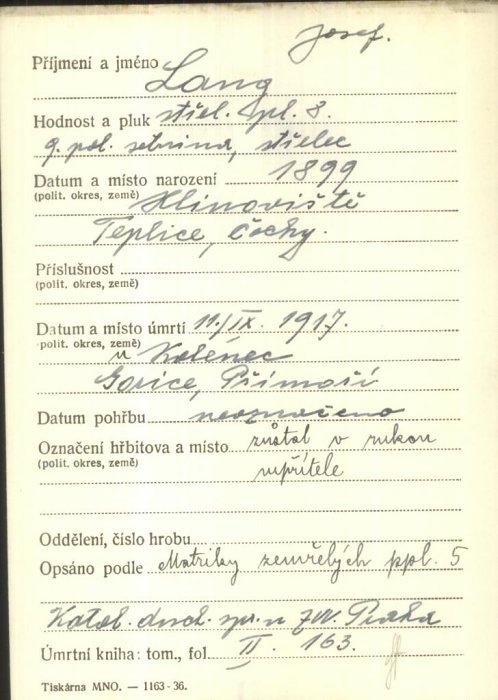 Josef.
Příjmení a jméno Lang
Hodnost a pluk střel. pl. 8.
9. pol. setnina, střelec
Datum a místo narození 1899
(polit. okres, země) Hlinoviště
Teplice, Čechy.
Příslušnost
(polit. okres, země)
Datum a místo úmrtí 11./IX. 1917.
(polit. okres, země) u
Gorice, Přímoří
Datum pohřbu neoznačeno
Označení hřbitova a místo zůstal v rukou
(polit. okres, země) nepřítele
Oddělení, číslo hrobu
Opsáno podle Matriky zemřelých ppl. 5
Katol. duch. správa ZVV. Praha
Úmrtní kniha: tom., fol. II. 163.
Tiskárna MNO. — 1163-36.